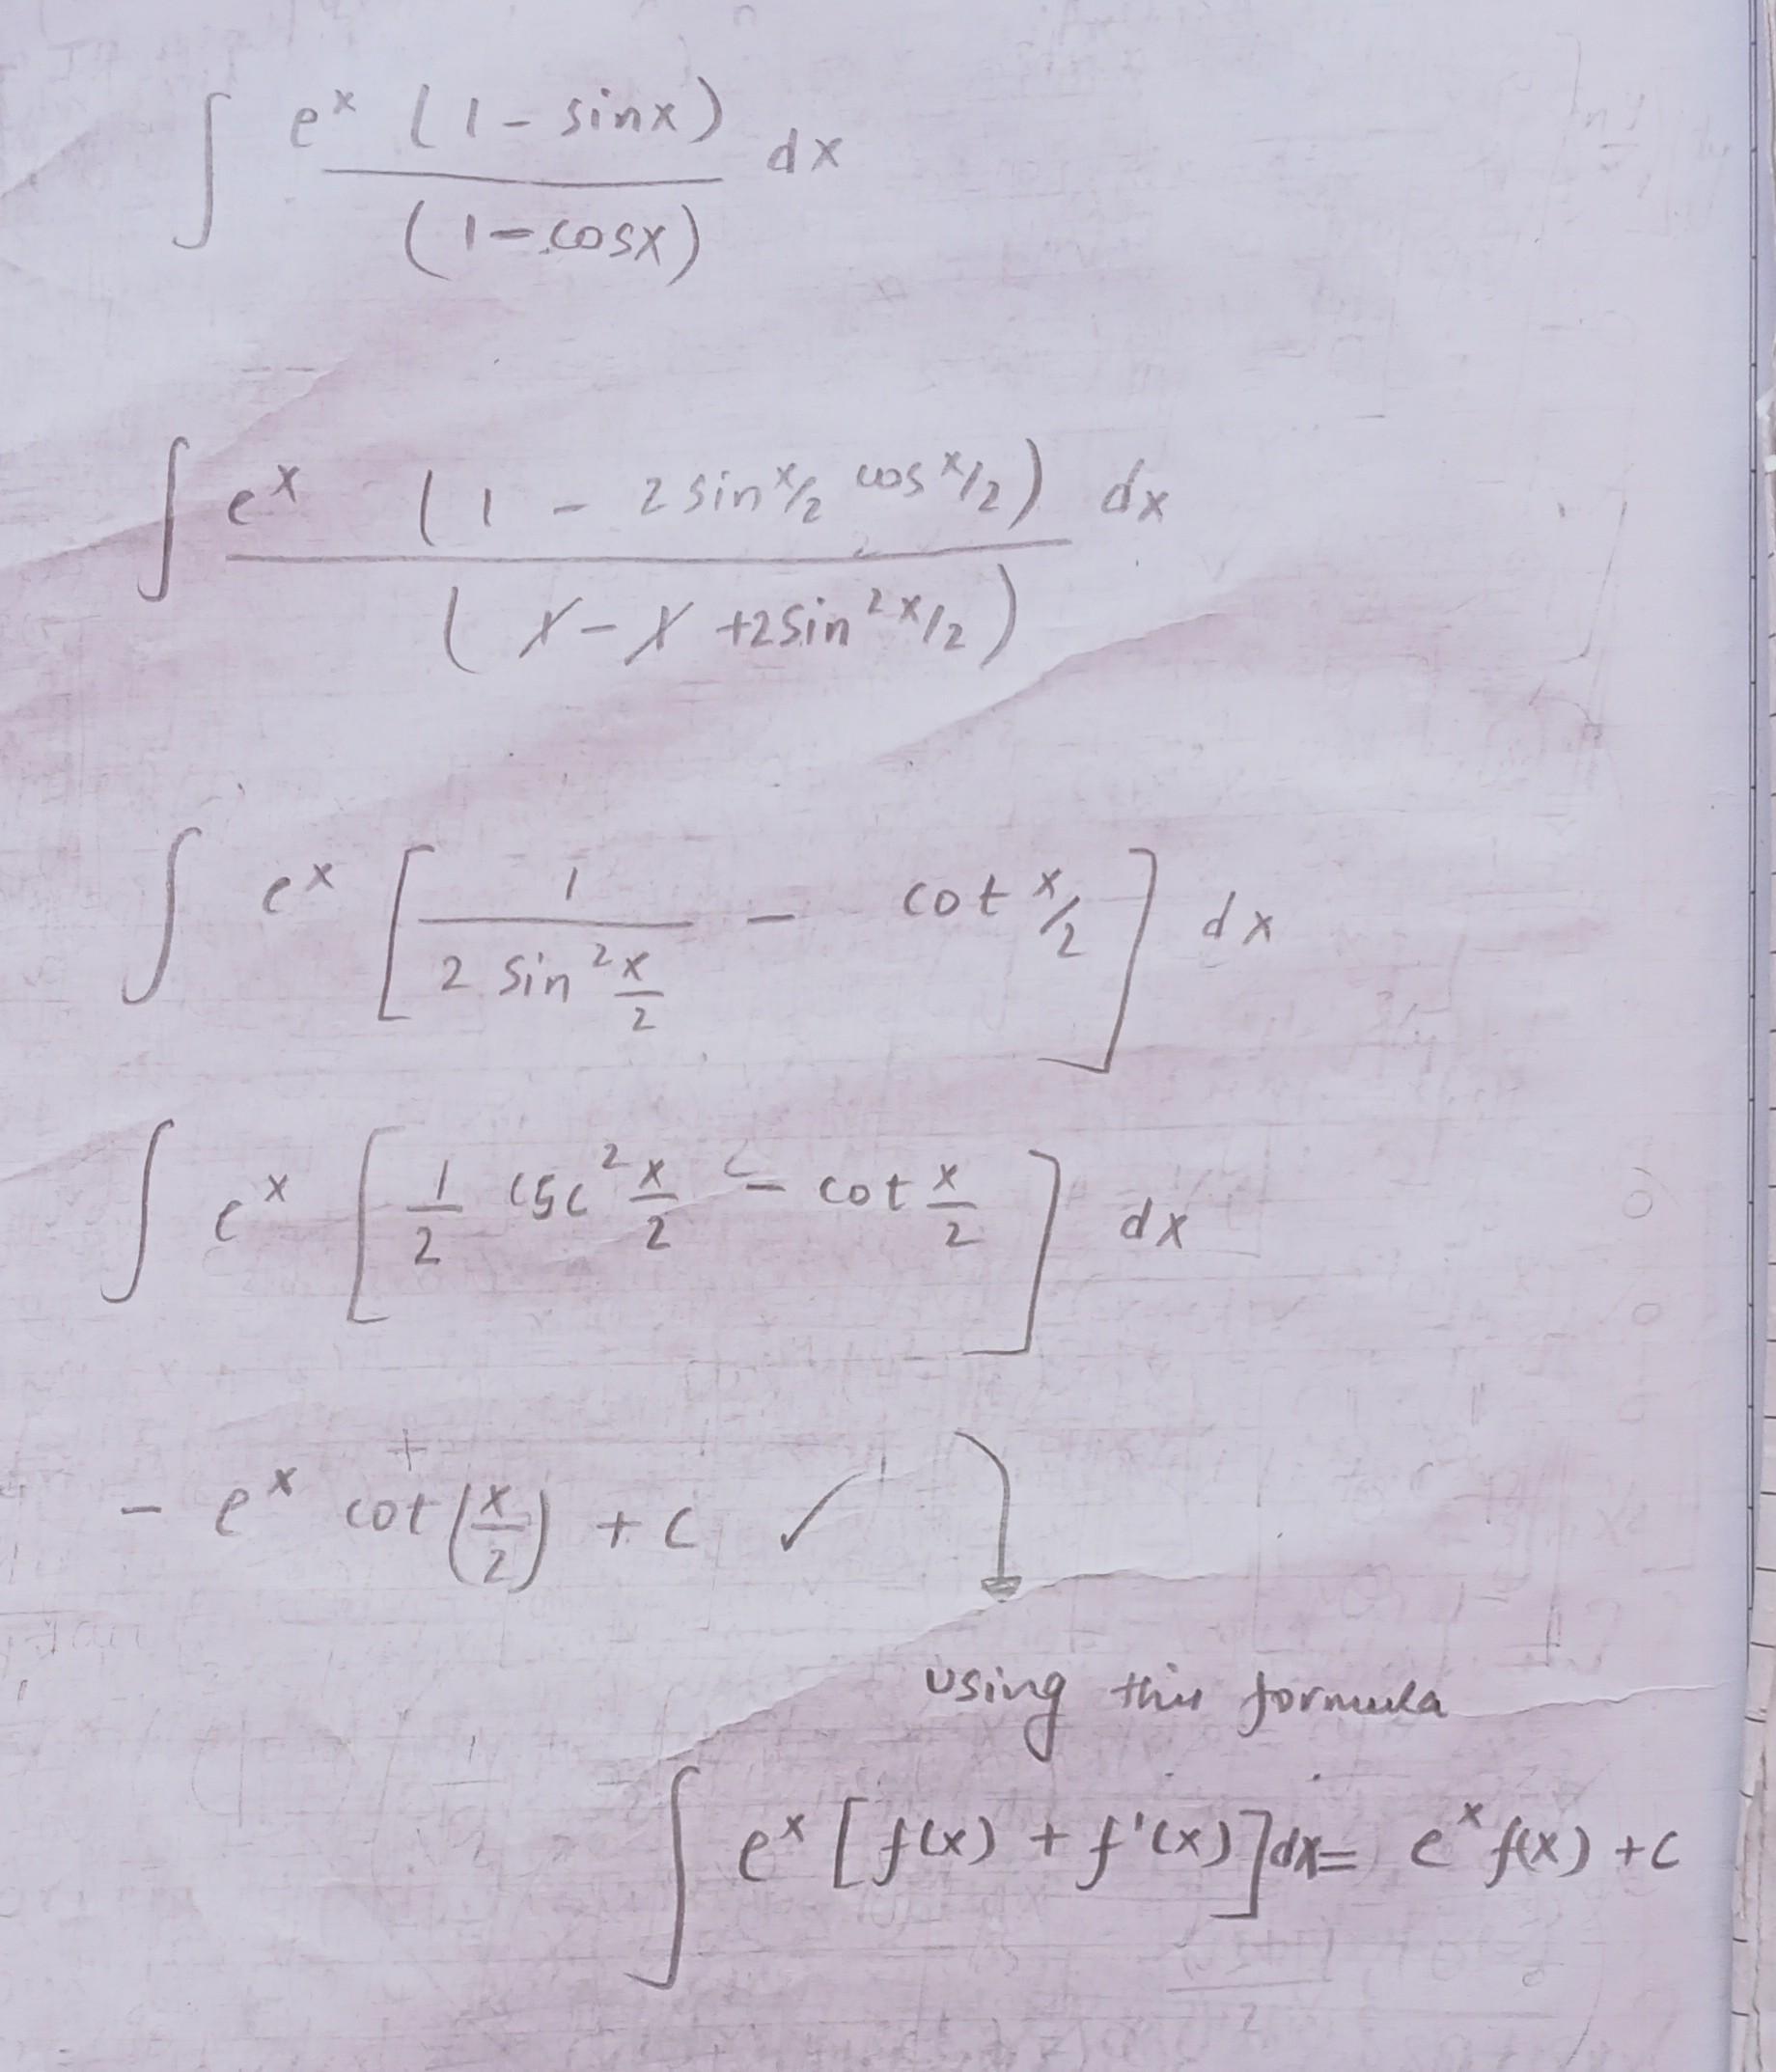 ∫ e^x (1 - sinx) / (1 - cosx) dx
∫ e^x (1 - 2 sin x/2 cos x/2) / (1 - 1 + 2 sin^2 x/2) dx
∫ e^x [ 1 / (2 sin^2 x/2) - cot x/2 ] dx
∫ e^x [ 1/2 csc^2 x/2 - cot x/2 ] dx
- e^x cot(x/2) + c ✓
using this formula
∫ e^x [f(x) + f'(x)] dx = e^x f(x) + c